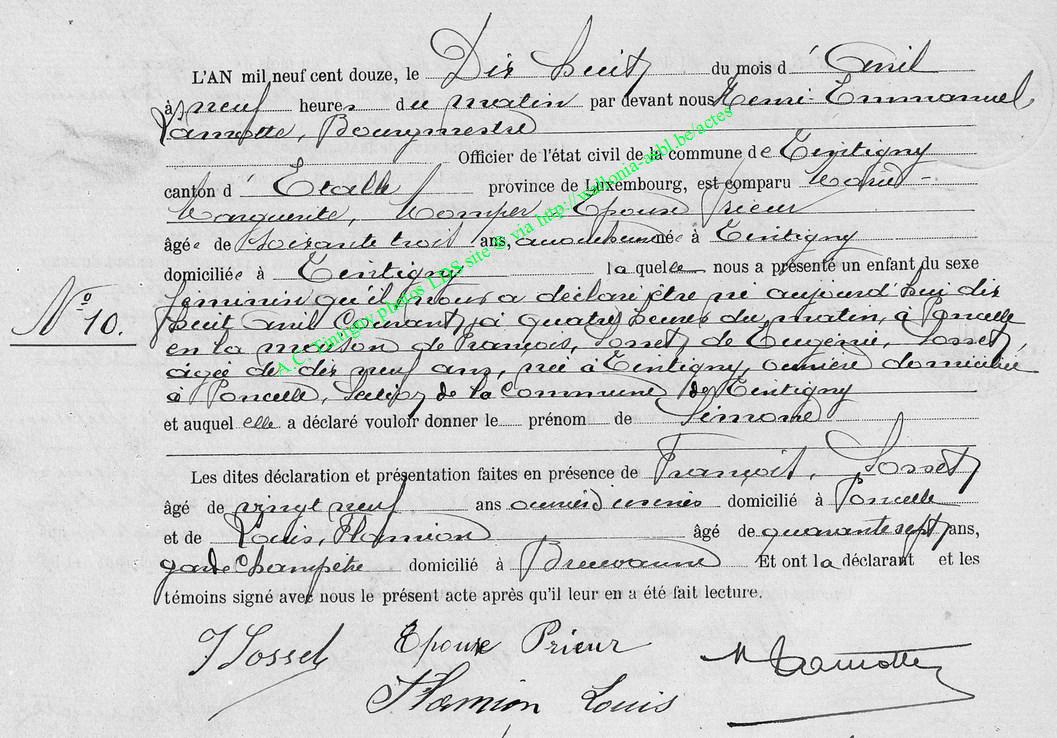 L'AN mil neuf cent douze, le Dix huit du mois d' Avril
à neuf heures du matin par devant nous Henri Emmanuel
Lamotte, Bourgmestre
Officier de l'état civil de la commune de Tintigny
canton d' Etalle province de Luxembourg, est comparu Marie
Marguerite, Epouse Prieur
âgée de Soixante trois ans, accoucheuse née à Tintigny
domiciliée à Tintigny laquelle nous a présenté un enfant du sexe
N° 10.
féminin qu'il nous a déclaré être né aujourd'hui dix
huit Avril Courant, à quatre heures du matin, à Poncelle
en la maison de François, Sosset, de Eugénie, Sosset,
âgée de dix neuf ans, née à Tintigny, ouvrière domiciliée
à Poncelle, Section de la Commune de Tintigny
et auquel elle a déclaré vouloir donner le prénom de Simone
Les dites déclaration et présentation faites en présence de François, Sosset
âgé de vingt neuf ans ouvrier domicilié à Poncelle
et de Louis, Flamion âgé de quarante sept ans,
garde Champêtre domicilié à Breuvanne Et ont la déclarant et les
témoins signé avec nous le présent acte après qu'il leur en a été fait lecture.
F Sosset Epouse Prieur H Lamotte
Flamion Louis
A.C. Tintigny photos LDS site © via http://wallonia-asbl.be/actes